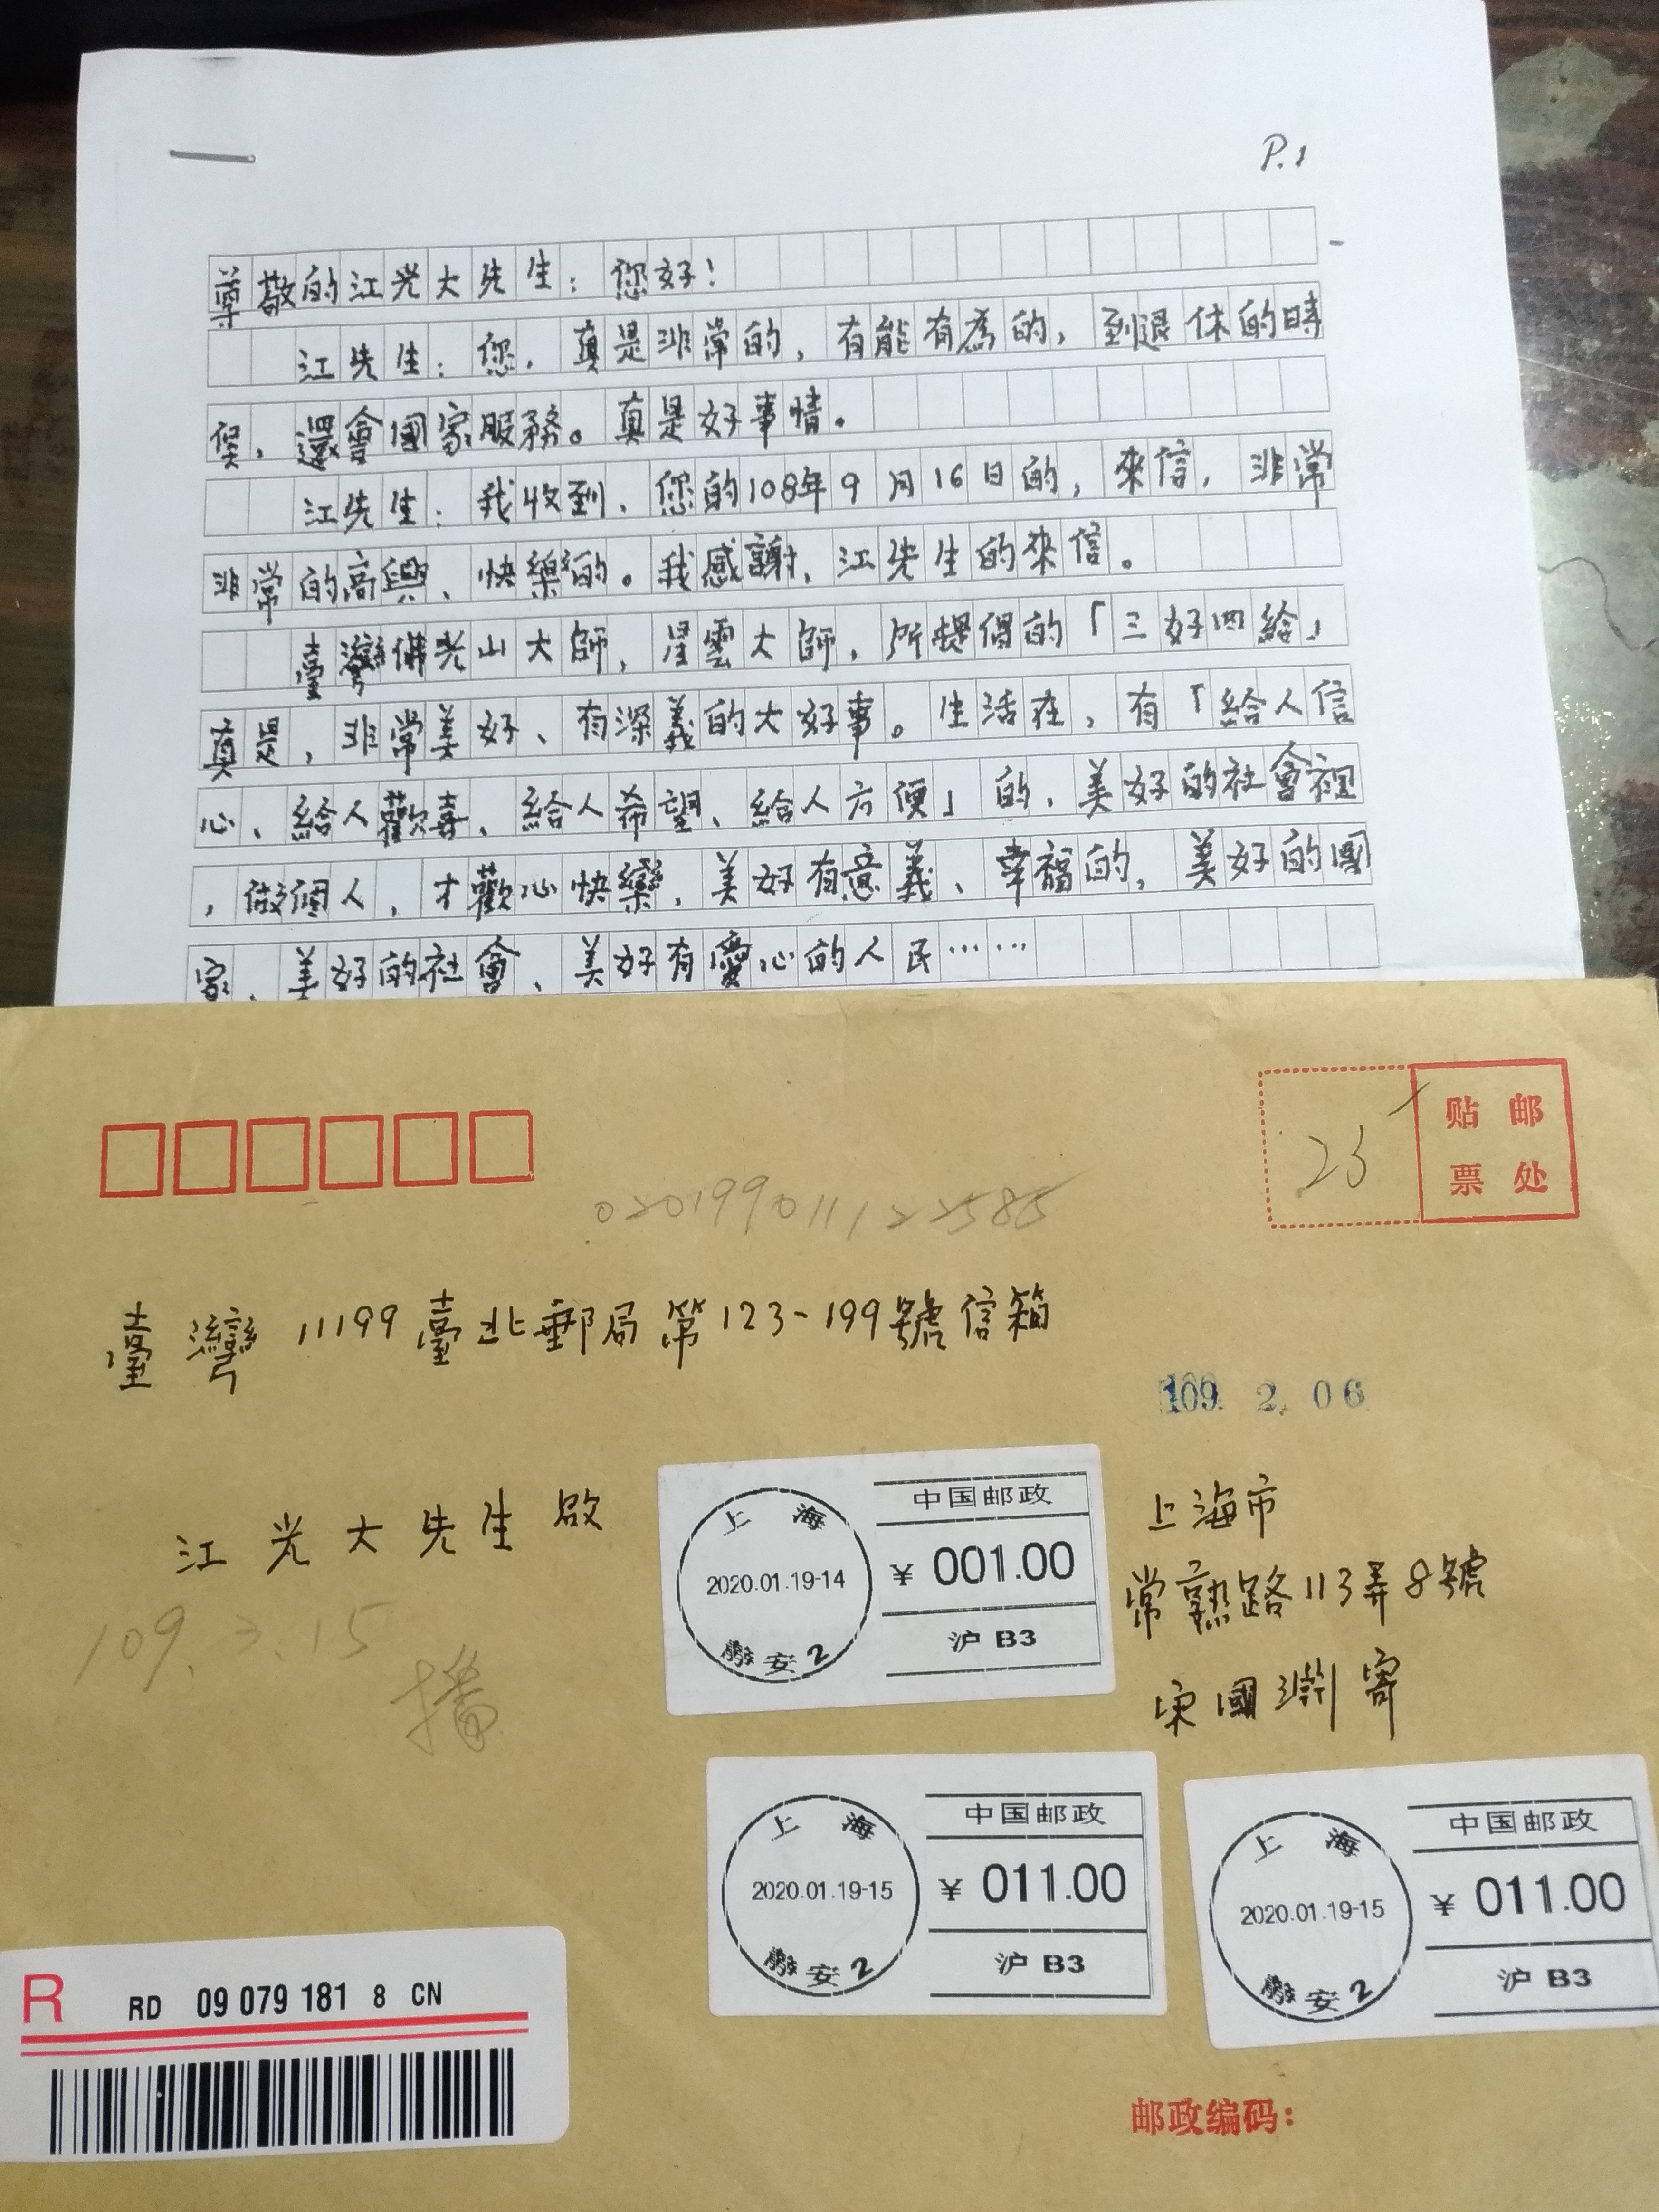 P.1
尊敬的江光大先生：您好！
江先生：您，真是非常的，有能有為的，到退休的時
候，還會國家服務。真是好事情。
江先生：我收到，您的108年9月16日的，來信，非常
非常的高興、快樂的。我感謝，江先生的來信。
臺灣佛光山大師，星雲大師，所提倡的「三好四給」
真是，非常美好、有深義的大好事。生活在，有「給人信
心、給人歡喜、給人希望、給人方便」的，美好的社會裡
，做個人，才歡心快樂，美好有意義、幸福的，美好的國
家、美好的社會、美好有愛心的人民……
贴邮
票处
23
020199011122585
臺灣11199臺北郵局第123-199號信箱
109. 2. 06
江光大先生啟
109.3.15
播
上海市
常熟路113弄8號
宋國 寄
上海
2020.01.19-14
安2
中国邮政
¥ 001.00
沪 B3
上海
2020.01.19-15
安2
中国邮政
¥ 011.00
沪 B3
上海
2020.01.19-15
安2
中国邮政
¥ 011.00
沪 B3
R
RD 09 079 181 8 CN
邮政编码：